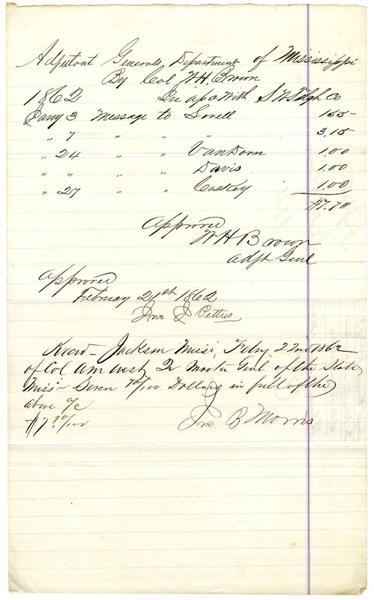 Adjutant Generals Department of Mississippi
By Col W.H. Brown
1862 In a/c with S W Telgh Co
Jany 3 Message to Lovell 1.55
" 7 " " " 3.15
" 24 " " Van Dorn 1.00
" " " Davis 1.00
" 27 " " 1.00
$7.70
Approved
W H Brown
Adjt Genl
Approved
February 21st 1862
Jno J Pettus
Recd Jackson Missi, Feby 22nd 1862
of Col Qr Master Genl of the State
Missi Seven 70/100 Dollars in full of the
above a/c
$7 70/100 Jno B Morris